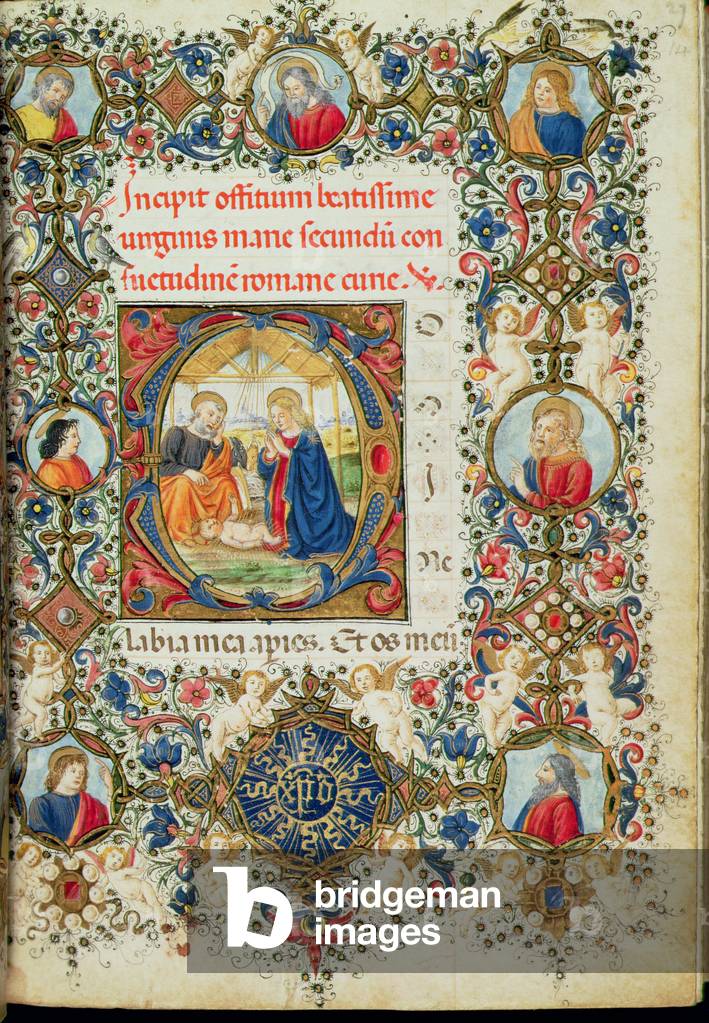 29
14
Incipit offitium beatissime
uirginis marie secundū con
suetudinē romane curie. ℣.
D
o
i
ne
labia mea apies. Et os meū
b bridgeman
images